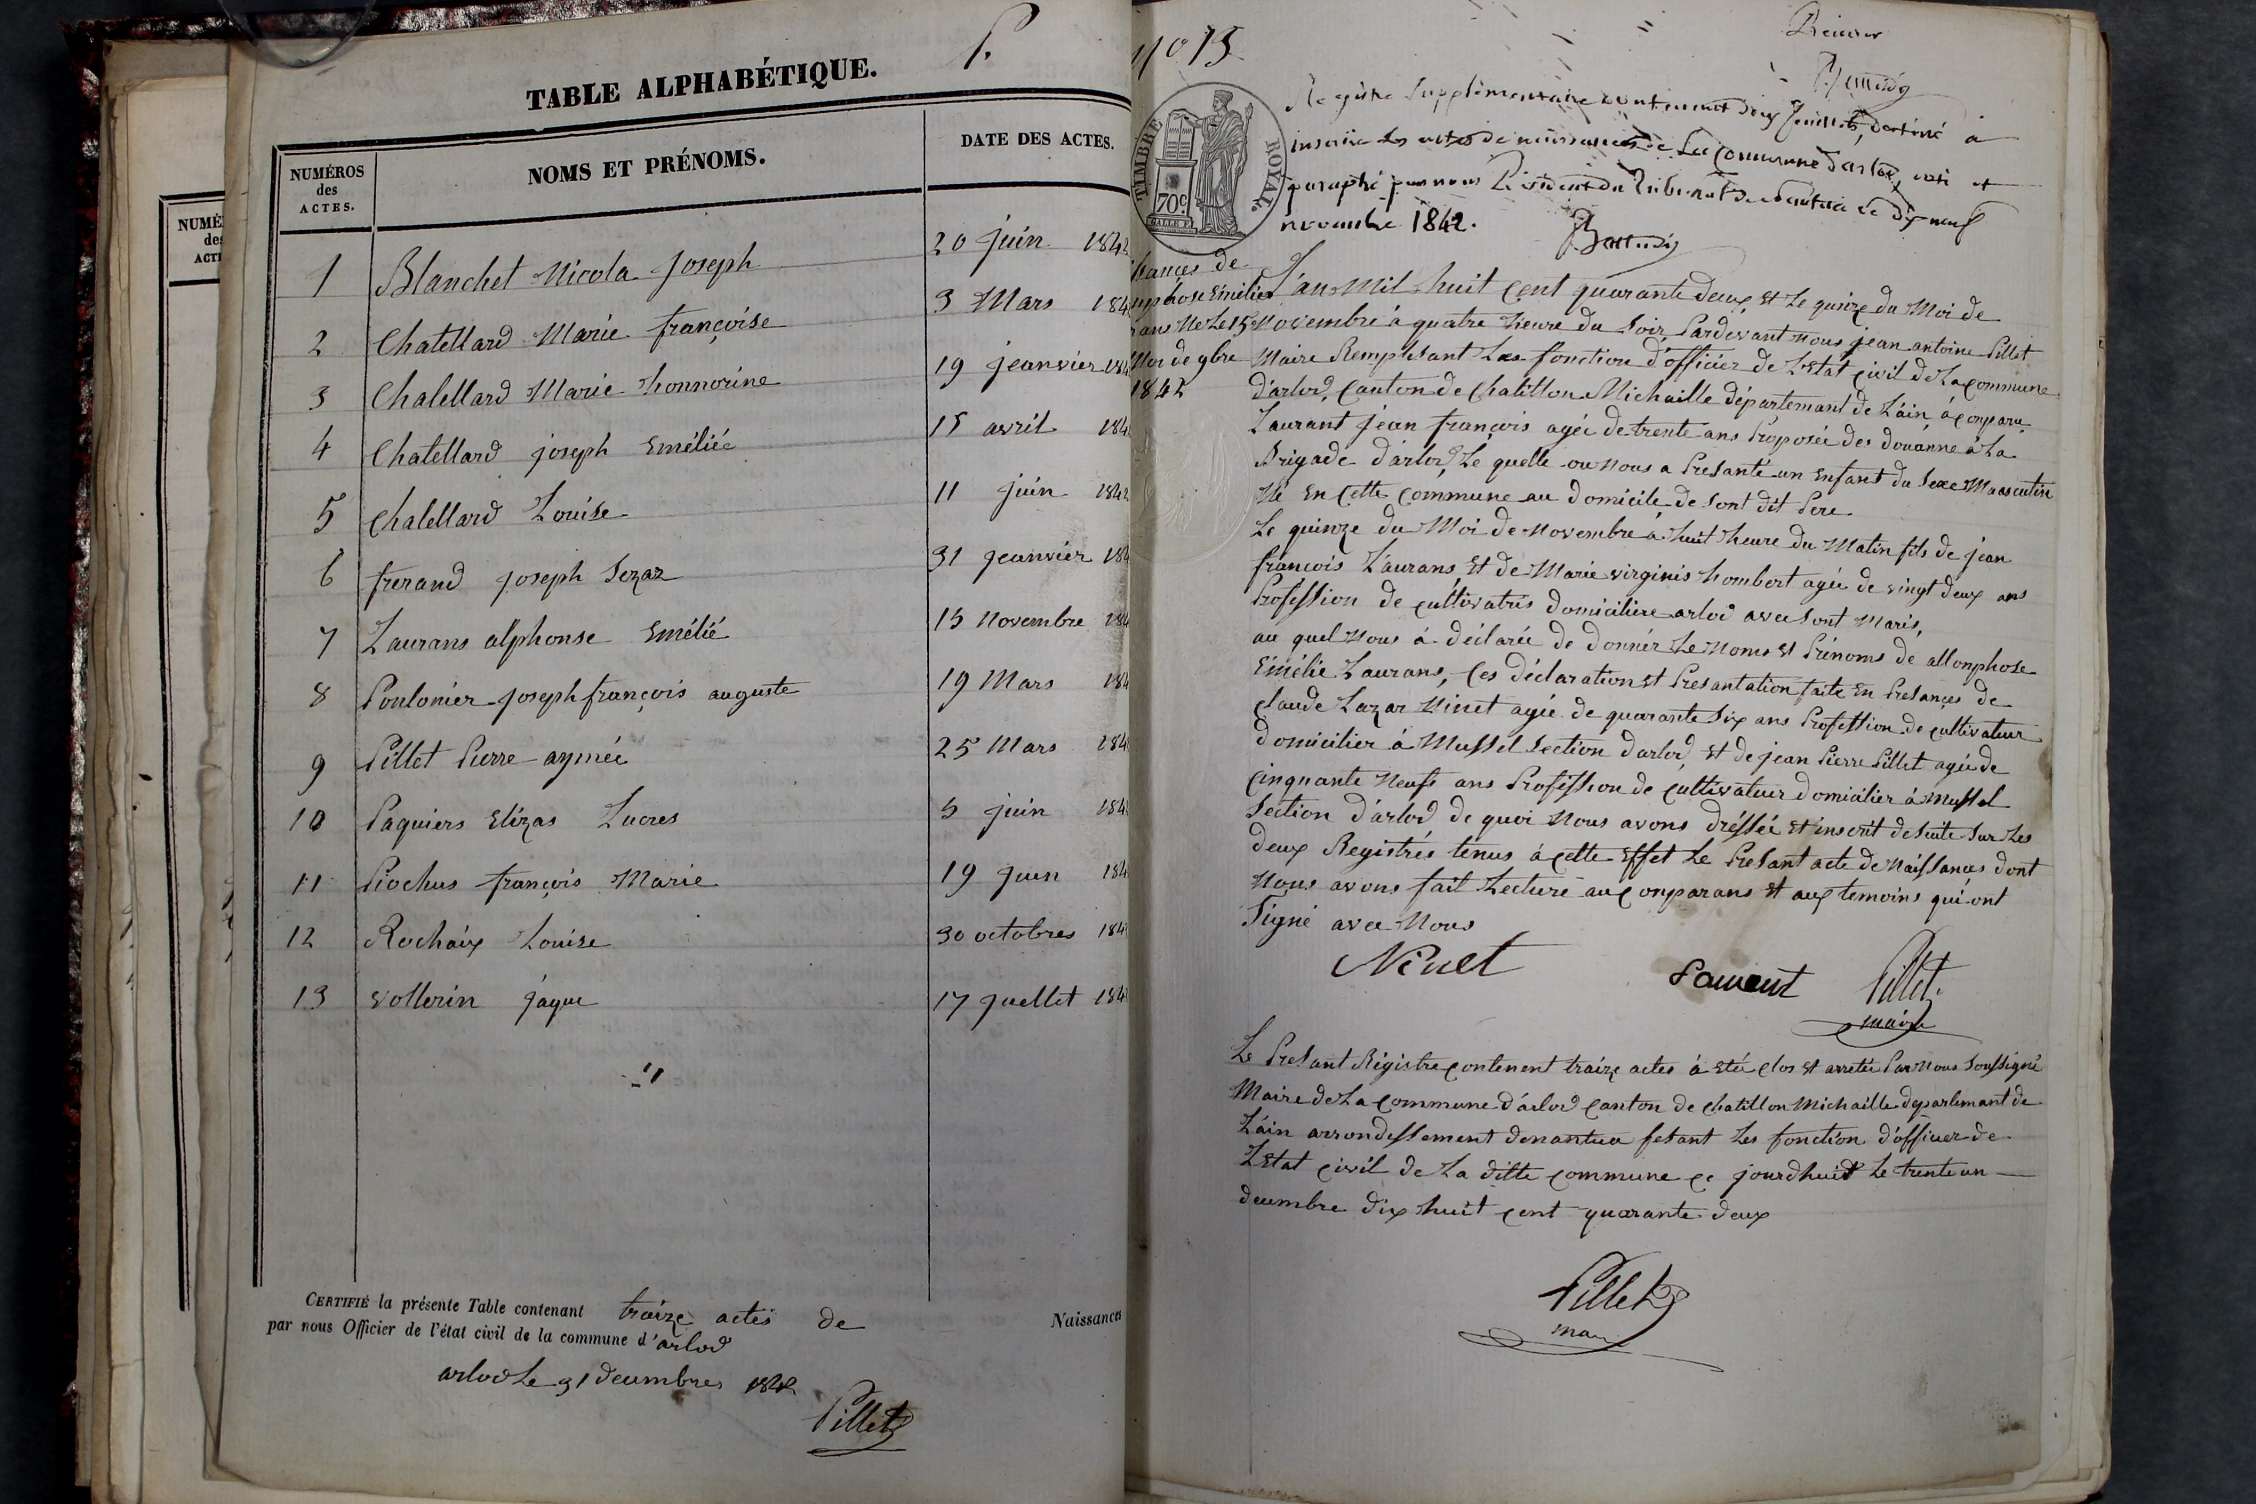 NUMÉ
des
ACTE
TABLE ALPHABÉTIQUE.
NUMÉROS
des
ACTES.
NOMS ET PRÉNOMS.
DATE DES ACTES.
1 Blanchet Nicola Joseph 20 juin 1842
2 Chatellard Marie françoise 3 Mars 184
3 Chatellard Marie honnorine 19 jeanvier 184
4 Chatellard joseph Eméliée 15 avril 184
5 Chatellard Louise 11 juin 1842
6 frerand joseph Sezar 31 jeanvier 184
7 Laurans alphonse Emélié 15 novembre 184
8 Poulonier joseph françois auguste 19 Mars 184
9 Pillet Pierre aymée 25 Mars 184
10 Paquiers Elizas Lucres 5 juin 184
11 Piochus françois Marie 19 juen 184
12 Rochaix Louise 30 octobres 184
13 vollerin jaque 17 juellet 184
CERTIFIÉ la présente Table contenant traize actes de Naissances
par nous Officier de l'état civil de la commune d'arlod
arlod Le 31 decembres 1842
Pillet
N° 13
Premier
TIMBRE ROYAL.
70c
Registre Supplémentaire contenant deux feuillets, destiné à
inscrire les actes de naissances de La Commune d'arlod, coté et
paraphé par nous Président du Tribunal de Nantua Le dix neuf
novembre 1842.
sances de
onphose Emélie
rans Né Le 15
Moi de 9bre
1842
L'an Mil huit cent quarante deux Et Le quinze du Moi de
Novembre à quatre heure du Soir Pardevant nous jean antoine Pillet
Maire Remplisant Les fonction d'officier de L'Etat civil de La commune
d'arlod, Canton de Chatillon Michaille département de L'ain à conparu
Laurant jean françois agée de trente ans Proposée des douanne à La
Brigade d'arlod, Le quelle ou Nous a Presanté un Enfant du Sexe Masculin
Né En Cette Commune au domicile de Sont dit Pere
Le quinze du Moi de Novembre à huit heure du Matin fils de jean
françois Laurans, Et de Marie virginis hombert agée de vingt deux ans
Profession de cultivatris domicilière arlod avec Sont Maris,
au quel Nous à déclarée de donnér Le Noms Et Prénoms de allonphose
Emélie Laurans, Ces déclaration Et Presantation faite En Presances de
claude Lazar Ninet agée de quarante Six ans Profession de cultivateur
domicilier à Mussel Section d'arlod, Et de jean Pierre Pillet agée de
Cinquante Neufs ans Profession de Cultivateur domicilier à Mussel
Section d'arlod de quoi Nous avons dréssée Et inscrit de Suite Sur Les
deux Registrés ténus à cette Effet Le Presant acte de Naissances dont
Nous avons fait Lecture au conparans Et aux temoins qui ont
Signé avec Nous
Ninet Laurent Pillet
maire
Le Presant Régistre contenent traize actes à Etée Clos Et arretée Par Nous Soussigné
Maire de La commune d'arlod Canton de Chatillon Michaille departemant de
L'ain arrondessement denantua fesant Les fonction d'officier de
L'Etat civil de La ditte commune ce jourdhuit Le trente un
decembre dix huit cent quarante deux
Pillet
maire